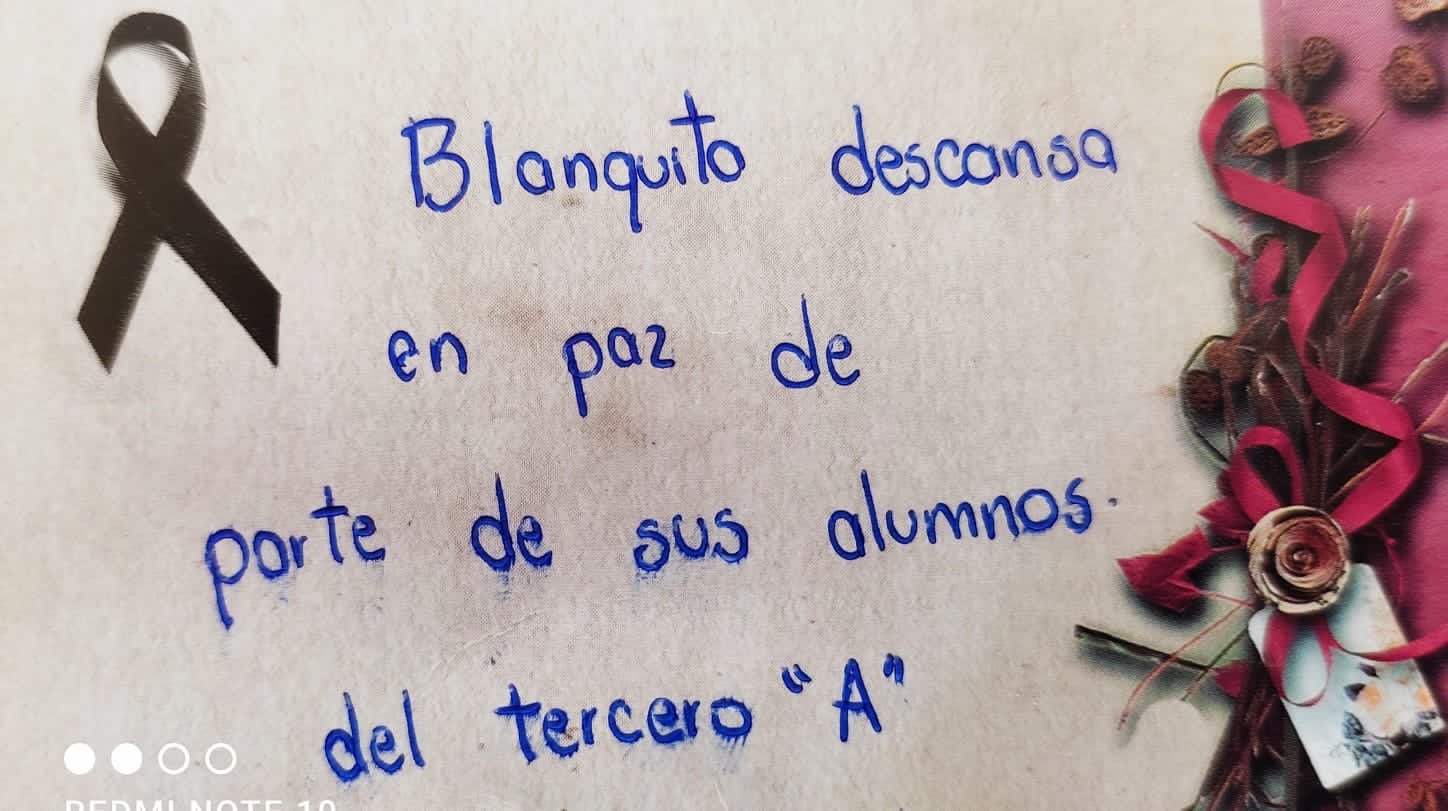 Blanquito descansa
en paz de
parte de sus alumnos.
del tercero "A"
REDMI NOTE 10